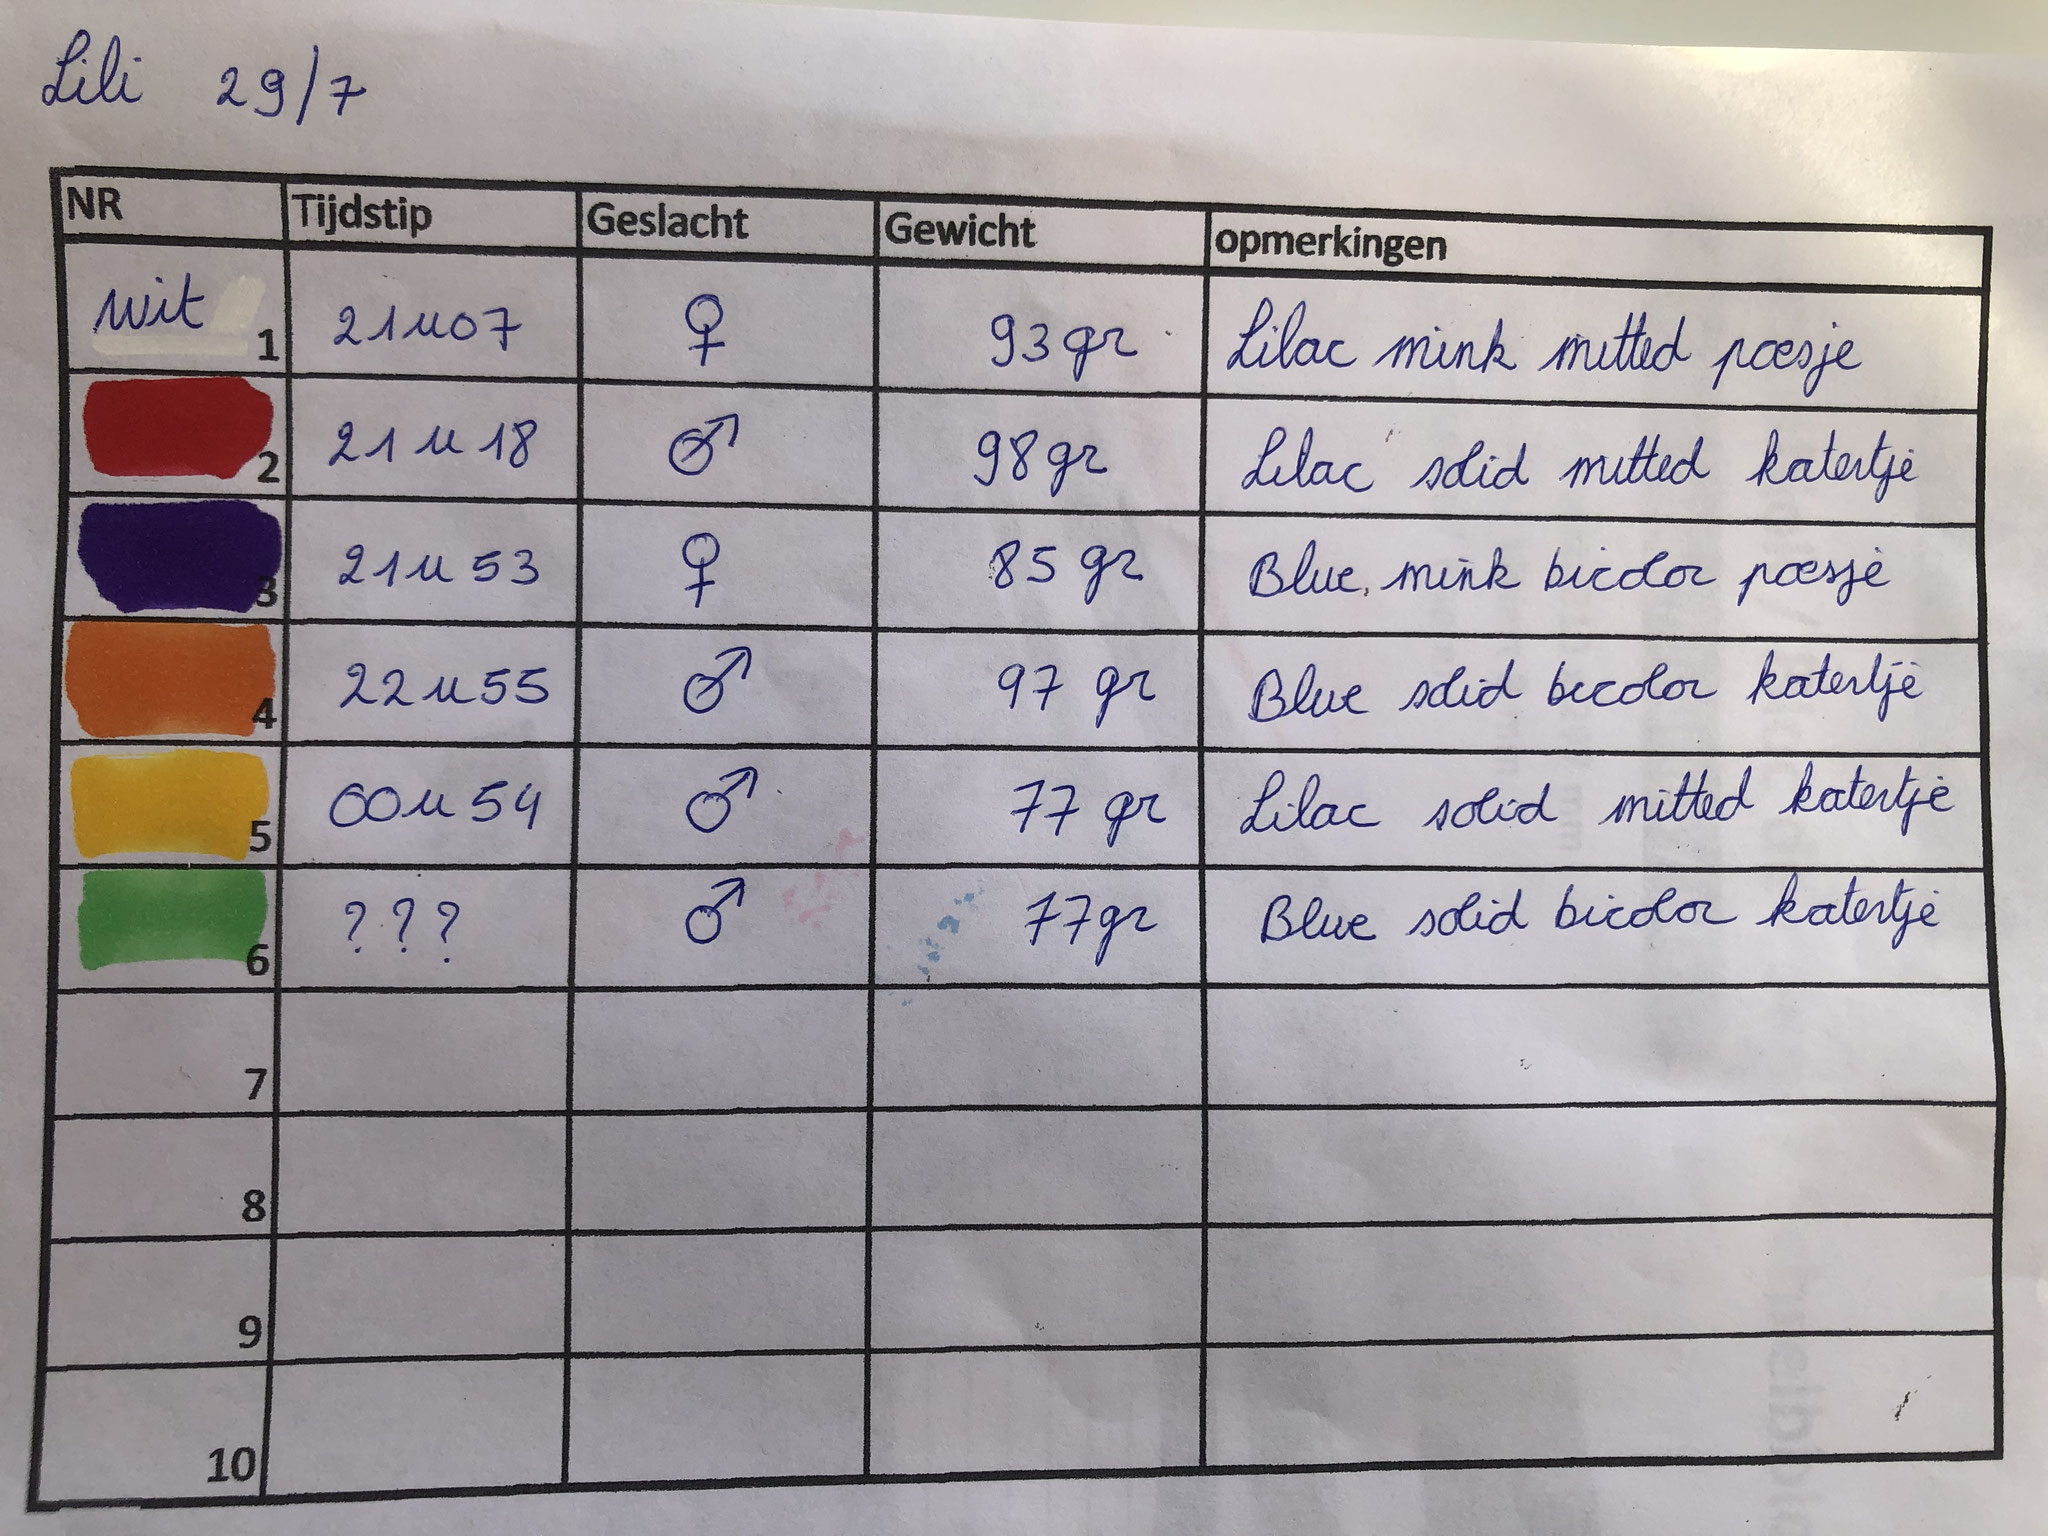 Lili 29/7
NR Tijdstip Geslacht Gewicht opmerkingen
wit 1 21u07 ♀ 93gr Lilac mink mitted poesje
2 21u18 ♂ 98gr Lilac solid mitted katertje
3 21u53 ♀ 85 gr Blue mink bicolor poesje
4 22u55 ♂ 97 gr Blue solid bicolor katertje
5 00u54 ♂ 77 gr Lilac solid mitted katertje
6 ??? ♂ 77gr Blue solid bicolor katertje
7
8
9
10